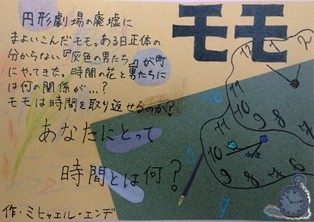 モモ
円形劇場の廃墟に
まよいこんだモモ。ある日正体の
分からない『灰色の男たち』が町
にやってきた。時間の花と男たちに
は何の関係が…?
モモは時間を取り返せるのか?
あなたにとって
時間とは何?
作・ミヒャエル・エンデ
12
11
10
9
8
7
6
11
10
9
8
7
6